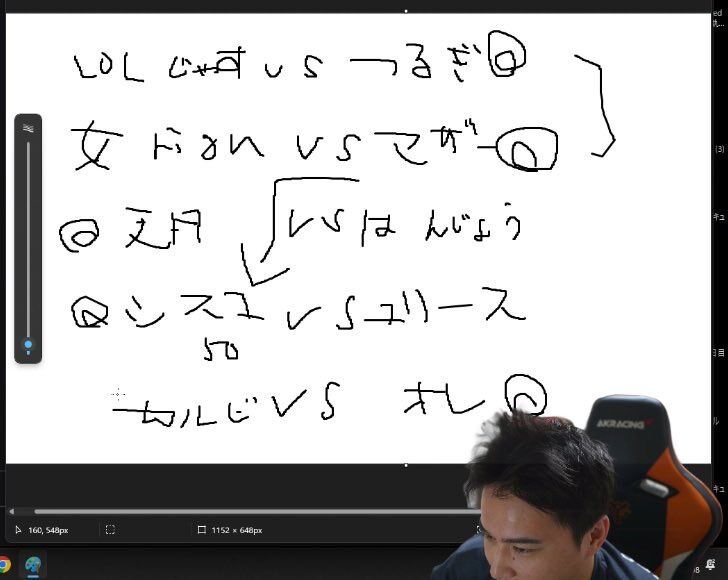 LOL じゃす vs つるぎ
女 vs マザー
天月 vs はんじょう
シスコ vs ユリース
50
カルビ vs オレ
AKRACING
160, 548px
1152 × 648px